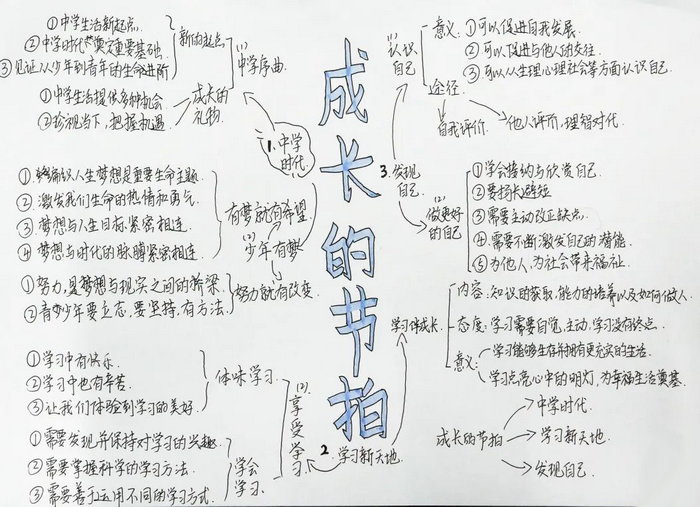 成长的节拍
1.中学时代
(1)
中学序曲.
新的起点
①中学生活新起点.
②中学时代奠定重要基础.
③见证从少年到青年的生命进阶
成长的礼物
①中学生活提供多种机会
②珍视当下,把握机遇
(2)
少年有梦
有梦就有希望
①编织人生梦想是重要生命主题.
②激发我们生命的热情和勇气
③梦想与人生目标紧密相连
④梦想与时代的脉搏紧密相连
努力就有改变.
①努力,是梦想与现实之间的桥梁
②青少年要立志,要坚持,有方法.
2.学习新天地.
学习伴成长
内容:知识的获取,能力的培养以及如何做人.
态度:学习需要自觉,主动,学习没有终点.
意义:
学习能够生存并拥有更充实的生活
学习点亮心中的明灯,为幸福生活奠基.
(2)
享受学习
体味学习.
①学习中有快乐.
②学习中也有辛苦.
③让我们体验到学习的美好.
学会学习.
①需要发现并保持对学习的兴趣
②需要掌握科学的学习方法.
③需要善于运用不同的学习方式.
3.发现自己.
(1)
认识自己
意义:①可以促进自我发展.
②可以促进与他人的交往.
③可以从生理心理社会等方面认识自己.
途径.
自我评价.
他人评价,理智对代.
(2)
做更好的自己
①学会接纳与欣赏自己
②要扬长避短
③需要主动改正缺点.
④需要不断激发自己的潜能.
⑤为他人,为社会带来福祉.
成长的节拍
中学时代.
学习新天地.
发现自己.